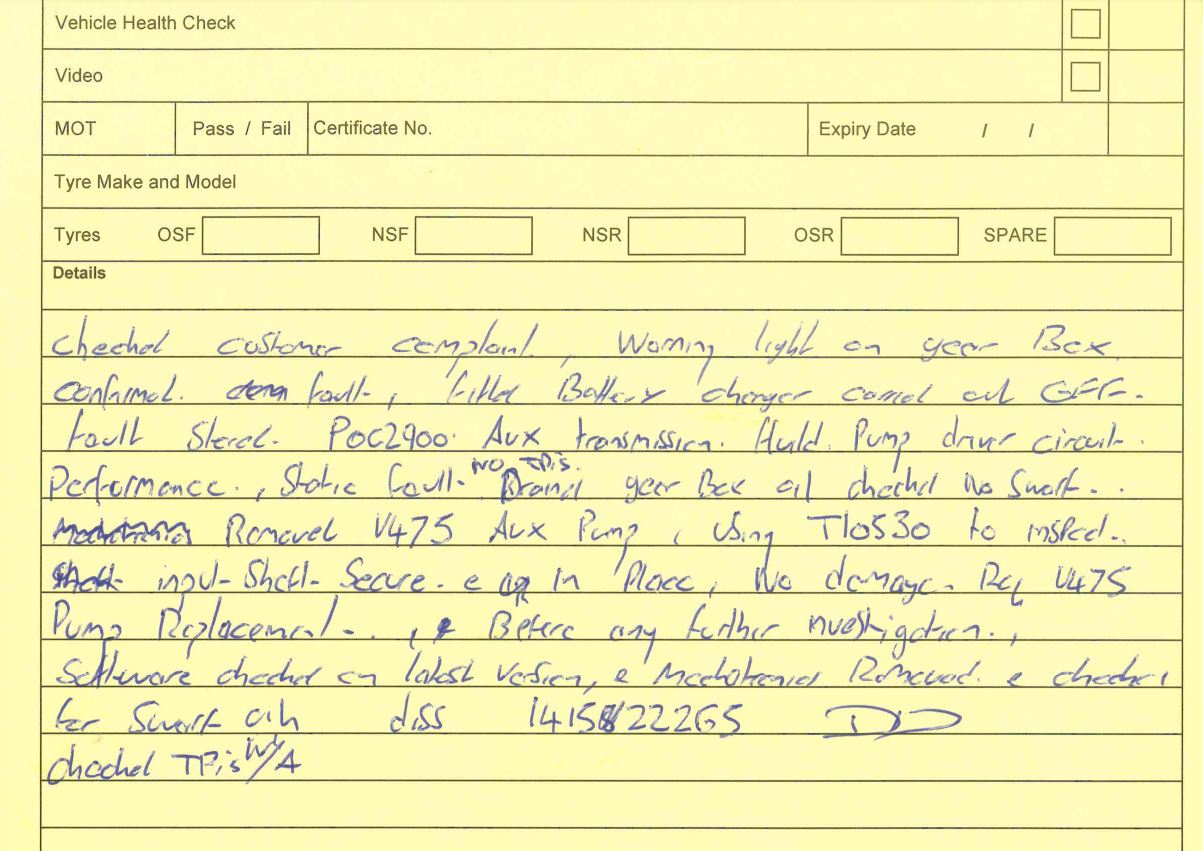 Vehicle Health Check
Video
MOT Pass / Fail Certificate No. Expiry Date / /
Tyre Make and Model
Tyres OSF NSF NSR OSR SPARE
Details
Checked customer complaint, Warning light on gear Box
confirmed. fault, fitted Battery charger carried out GFF.
fault Stored. P0C2900. Aux transmission. fluid. Pump driver circuit.
Performance., Static fault. NO TPis. Draind gear Box oil checked No Swarf..
Removed V475 Aux Pump, using T10530 to inspect..
input Shaft Secure. e in Place, No damage. Req V475
Pump Replacement.., Before any further investigation.,
Software checked on latest version, e Mechatronic Removed. e checked
for Swarf diss 22265
checked TPis N/A